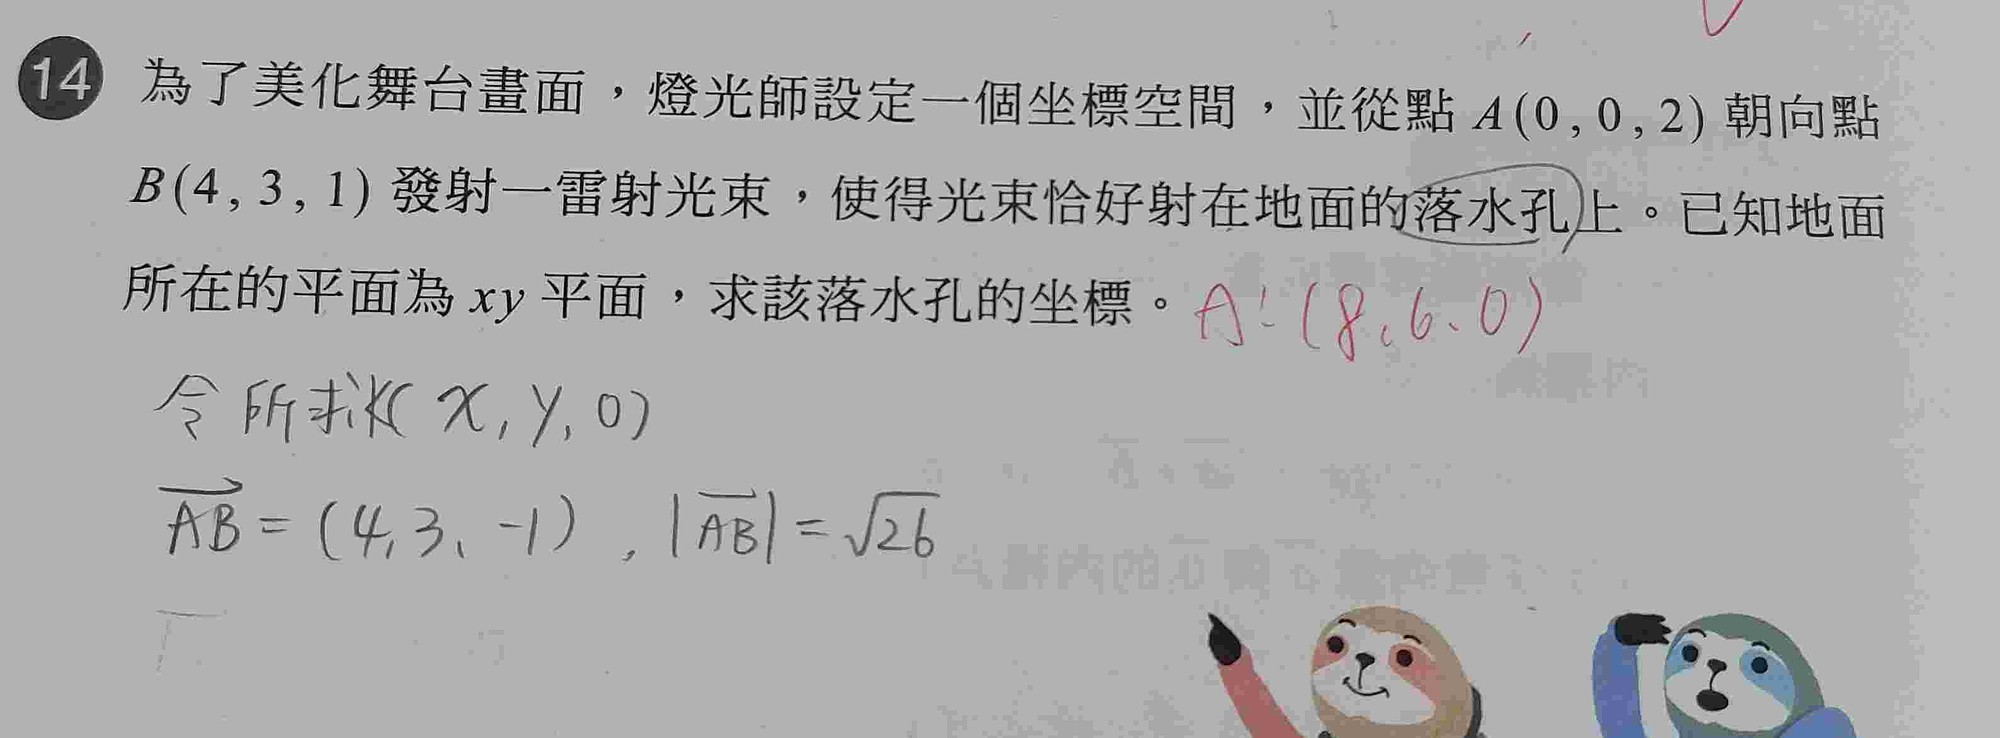 14 為了美化舞台畫面，燈光師設定一個坐標空間，並從點 A(0, 0, 2) 朝向點
B(4, 3, 1) 發射一雷射光束，使得光束恰好射在地面的落水孔上。已知地面
所在的平面為 xy 平面，求該落水孔的坐標。 A:(8.6.0)
令所求(x, y, 0)
AB=(4,3、-1), |AB|=√26